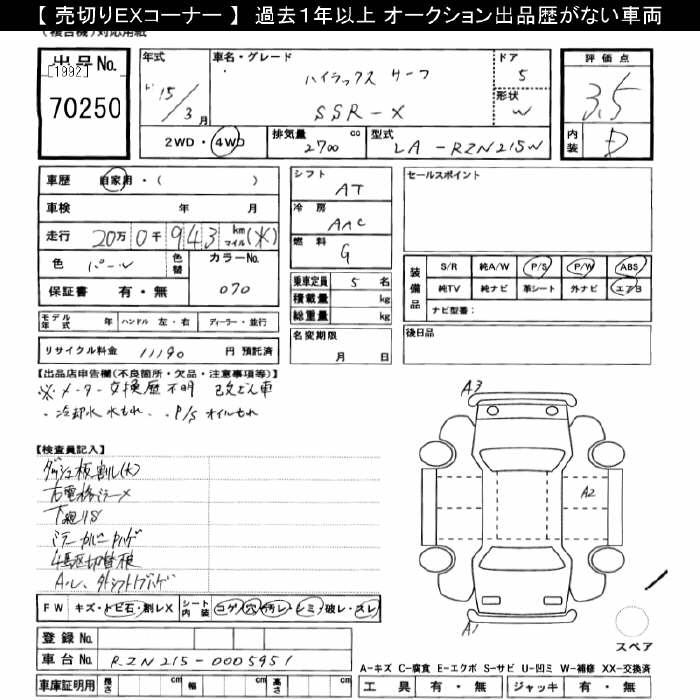 【 売切りEXコーナー 】 過去１年以上 オークション出品歴がない車両
(複合機)対応用紙
出品No.
[1992]
70250
年式
15/3月
車名・グレード
ハイラックス サーフ
SSR-X
ドア
5
形状
W
評価点
3.5
内装
D
2WD・4WD
排気量
2700 cc
型式
LA-RZN215W
車歴 自家用・( )
車検 年 月
走行 20万0千943 km マイル(*)
色 パール 色替 カラーNo.
保証書 有・無 070
モデル年式 年 ハンドル 左・右 ディーラー・並行
リサイクル料金 11190 円 預託済
シフト AT
冷房 AAC
燃料 G
乗車定員 5 名
積載量 kg
総重量 kg
名変期限
月 日
セールスポイント
装備品
S/R 純A/W P/S P/W ABS
純TV 純ナビ 革シート 外ナビ エアB
ナビ型番：
後日品
【出品店申告欄(不良箇所・欠品・注意事項等)】
※メーター交換歴不明 改ざん車
・冷却水 水もれ、・P/S オイルもれ
【検査員記入】
右電格ミラー×
下廻りS
A3
A2
A1
スペア
FW キズ・トビ石・割レX シート内装 コゲ・穴・汚レ・シミ・破レ・スレ
登録No.
車台No. RZN215-0005951
車庫証明用 長さ cm 幅 cm 高さ cm
A-キズ C-腐食 E-エクボ S-サビ U-凹ミ W-補修 XX-交換済
工具 有・無 ジャッキ 有・無